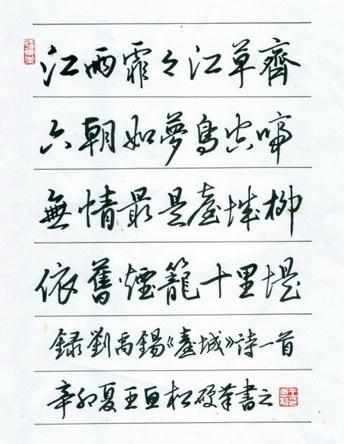 江雨霏々江草齊
六朝如夢鳥空啼
無情最是臺城柳
依舊煙籠十里堤
録劉禹錫《臺城》诗一首
辛卯夏王松硬筆書之